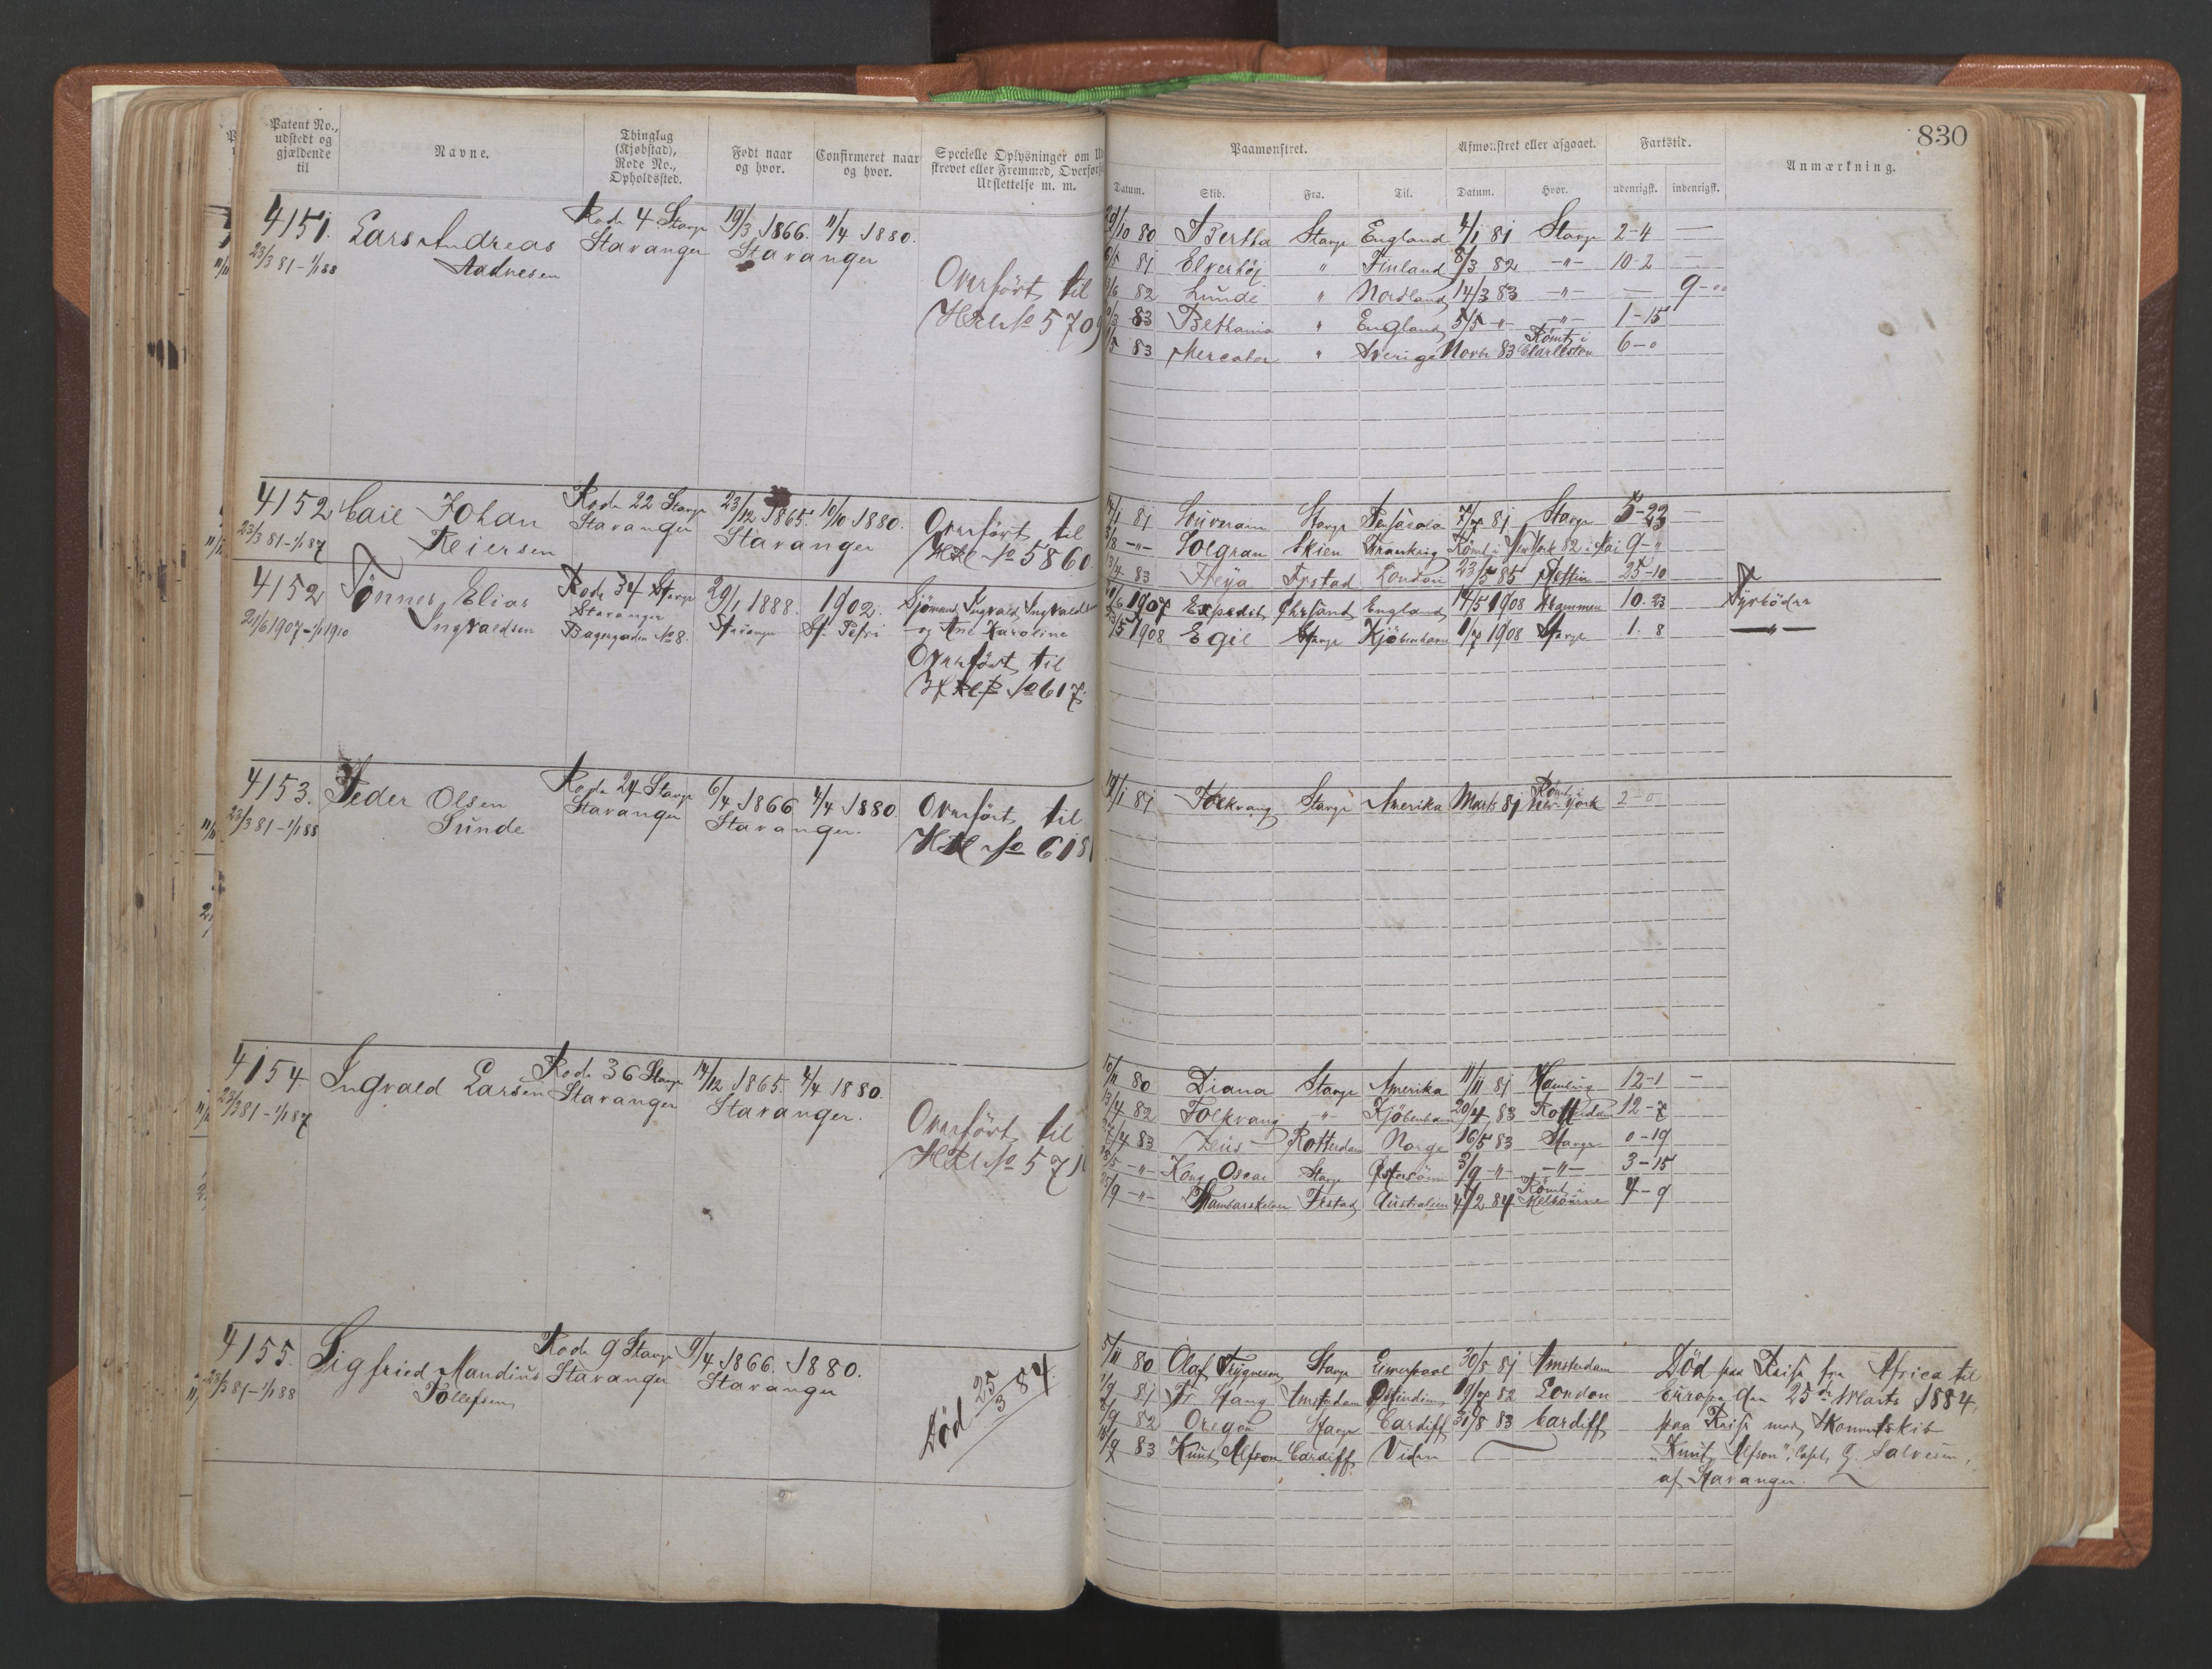 830
Patent No., udstedt og gjældende til
Navne.
Thinglag (Kjøbstad), Rode No., Opholdssted.
Født naar og hvor.
Confirmeret naar og hvor.
Specielle Oplysninger om
skrevet eller Fremmed,
Udslettelse m. m.
Paamønstret.
Afmønstret eller afgaaet.
Fartstid.
Anmærkning.
Datum. Skib. Fra. Til. Datum. Hvor. udenrigsk. indenrigsk.
4151. Lars Andreas Rode 4 Stavgr 19/3 1866. 11/4 1880.
23/3 81-1/1 88 Aadnesen Stavanger Stavanger
Overført til
HRl No 570
80 Bertha Stavgr England 4/1 81 Stavgr 2-4 —
81 Elverhøj " Finland 8/3 82 -"- 10-2 —
82 Lunde " Nordland 14/3 83 -"- — 9-
83 Bethania " England 5/5 -"- -"- 1-15
83 Mercator " Sverige Novbr 83 Rømt i Charleston 6-0
4152 Carl Johan Rode 22 Stavgr 23/12 1865. 10/10 1880. Overført til
23/3 81-1/1 87 Reiersen Stavanger Stavanger HRl No 5860.
81 Stavgr 7/7 81 Stavgr 5-23 —
-"- Solgran Skien Frankrig Rømt i New York 82 i Mai 9-"
83 Freya Frstad London 23/5 85 Stettin 25-10
4152 Tønnes Elias Rode 34 Stavgr 29/1 1888. 1902. Sjømand Ingvald Ingvaldsen
21/6 1907-1/1 1910 Ingvaldsen Stavanger Stavanger St. Petri og Ane Karoline
Bagergaden No 8.
Overført til
No 617
1907 Expedit Chrsand England 14/5 1908 Drammen 10.23 Fyrbøder
1908 Egil Stavgr Kjöbenhavn 1/7 1908 Stavgr 1. 8 —"—
4153. Peder Olsen Rode 24 Stavgr 6/4 1866 4/4 1880. Overført til
23/3 81-1/1 88 Sunde Stavanger Stavanger. HRl No 618
81 Folkvang Stavgr Amerika Marts 81 Rømt i New-York 2-0
4154 Ingvald Larsen Rode 36 Stavgr 14/12 1865. 4/4 1880.
23/3 81-1/1 87 Stavanger Stavanger.
Overført til
HRl No 571
80 Diana Stavgr Amerika 11/11 81 Hamburg 12-1 —
13/4 82 Folkvang -"- Kjöbenhavn 20/4 83 Rotterdam 12-7
27/4 83 Zeus Rotterdam Norge 16/5 83 Stavgr 0-19
-"- Kong Oscar Stavgr Østersöen 3/9 -"- -"- 3-15
25/9 -"- Frstad Australien 4/2 84 Rømt i Melbourne 4-9
4155. Sigfried Mandius Rode 9 Stavgr 9/4 1866. 1880.
23/3 81-1/1 88 Tollefsen Stavanger Stavanger
Död 25/3 84.
5/11 80 Olaf Trygveson Stavgr Liverpool 30/8 81 Amsterdam Död paa Reise fra Africa til
81 Fr Stang Amsterdam Ostindien 19/7 82 London Europa den 25de Marts 1884,
82 Oregon Stavgr Cardiff 31/8 83 Cardiff paa Reise med Skonnertskib
83 Knut Alfson Cardiff Viden „Knut Alfson", Capt. G. Salvesen,
af Stavanger.